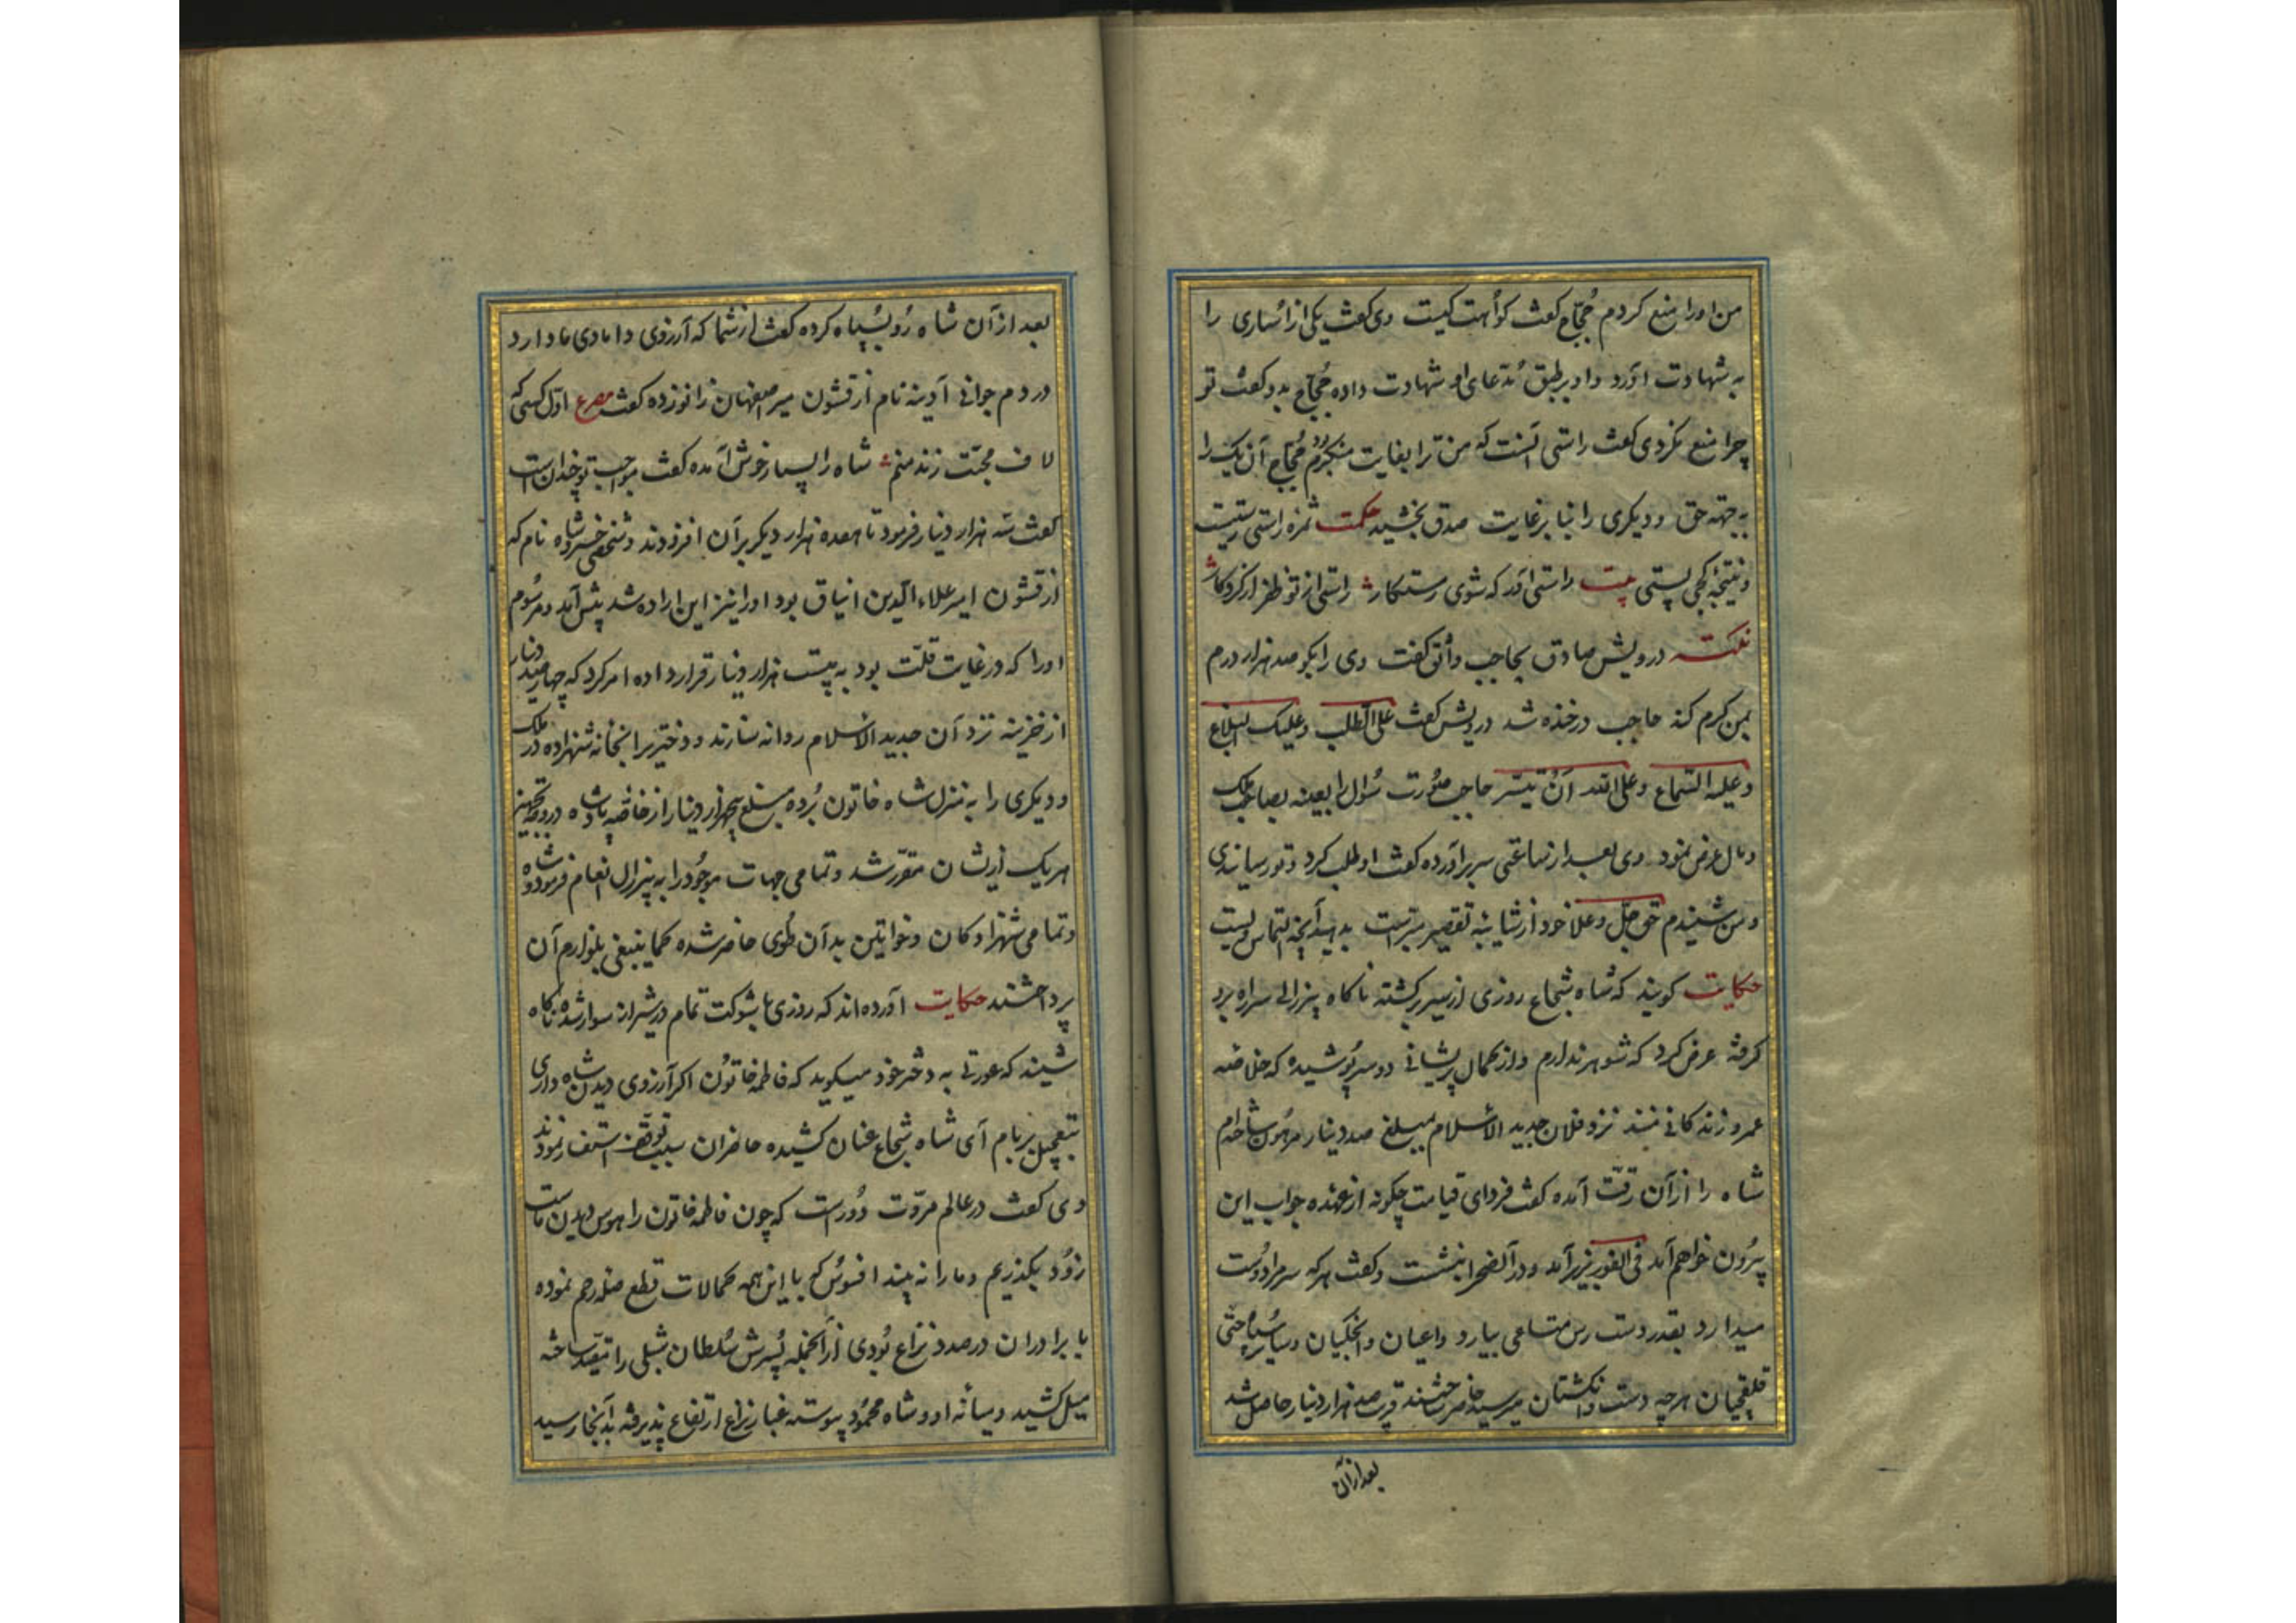 من اورا منع کردم حُجّاج گفت گواهت کیست وی گفت یکی از اُساری را
به شهادت آورد واو برطبق مُدّعای او شهادت داده حُجّاج بدو گفت تو
چرا منع نکردی گفت راستی آنست که من ترا بغایت منکرم حُجّاج آن یک را
به جهة حق ودیگری را بنا برغایت صدق بخشید حکمت ثمرهٔ راستی رستیست
ونتیجهٔ کجی پستی بیت راستی آور که شوی رستگار راستی از تو ظفر از کردگار
نکته درویش صادق بحاجب واثق گفت وی را بگو صد هزار درم
بمن کرم کند حاجب درخنده شد درویش گفت علیّ الطلب وعلیک البلاغ
وعلیه السماع وعلی الله اَنْ تیسّر حاجب صُورت سُؤال را بعینه بصاحب ملک
ومال عرض نمود وی بعد از ساعتی سر برآورده گفت او طلب کرد وتو رسانیدی
ومن شنیدم حق جلّ وعلا خود از شایبهٔ تقصیر مبرّاست بدهید آنچه التماس ویست
حکایت گویند که شاه شجاع روزی از سیر برگشته ناگاه پیرزالی سر راه برو
گرفته عرض کرد که شوهر ندارم واز کمال پریشانی دو سرپُوشیده که خلاصهٔ
عمر و زندگانی منند نزد فلان جدید الاسلام بمبلغ صد دینار مرهُون ساخته‌ام
شاه را از آن رقّت آمده گفت فردای قیامت چگونه از عهده جواب این
بیرُون خواهم آمد فی الفور بزیر آمد ودر آن صحرا بنشست وگفت هرکه سر مرا دُوست
میدارد بقدر دست رس متاعی بیارد واعیان وایچکیان وسایر سپاه حتّی
قلقچیان هرچه دست وانگشتان میرسید حاضر ساختند قریب صد هزار دینار حاصل شد
بعد از آن
بعد از آن شاه رُو بسُپاه کرده گفت از شما که آرزوی دامادی ما دارد
در دم جوانی آدینه نام از قشون میر اصفهان زانو زده گفت مصرع اوّل کسی که
لاف محبّت زند منم شاه را بسیار خوش آمده گفت مواجب تو چنداست
گفت سه هزار دینار فرمود تا هفده هزار دیگر بر آن افزودند وشخصی خسرو شاه نام که
از قشون امیر علاء الدین ایناق بود اورا نیز این اراده شد پیش آمد ومرسُوم
اورا که در غایت قلّت بود به بیست هزار دینار قرار داده امر کرد که چهار صد دینار
از خزینه نزد آن جدید الاسلام روانه سازند و دختر را بخانه شهزاده در ملک
ودیگری را به منزل شاه خاتون بُرده مبلغ پنجهزار دینار از خاصّه پادشاه در وجه تجهیز
هریک از ایشان مقرّر شد وتمامی جهات موجُود را به پیرزال انعام فرموده
وتمامی شهزادگان وخواتین بدآن طُوی حاضر شده کما ینبغی بلوازم آن
پرداختند حکایت آورده‌اند که روزی با شوکت تمام در شیراز سوار شده ناگاه
شنید که عورتی به دختر خود میگوید که فاطمه خاتُون اگر آرزوی دیدن شاه داری
بتعجیل بر بام آی شاه شجاع عنان کشیده حاضران سبب توقّف استفسار نمودند
وی گفت در عالم مروّت دُورست که چون فاطمه خاتون را هوس دیدن ماست
زُود بگذریم وما را نه بیند افسوُس که با این همه کمالات قطع صلهٔ رحم نموده
با برادران درصدد نزاع بُودی از آنجمله پُسرش سُلطان شبلی را مقیّد ساخته
میل کشید ومیانه او وشاه محمُود پیوسته غبار نزاع ارتفاع پذیرفته بدآنجا رسید